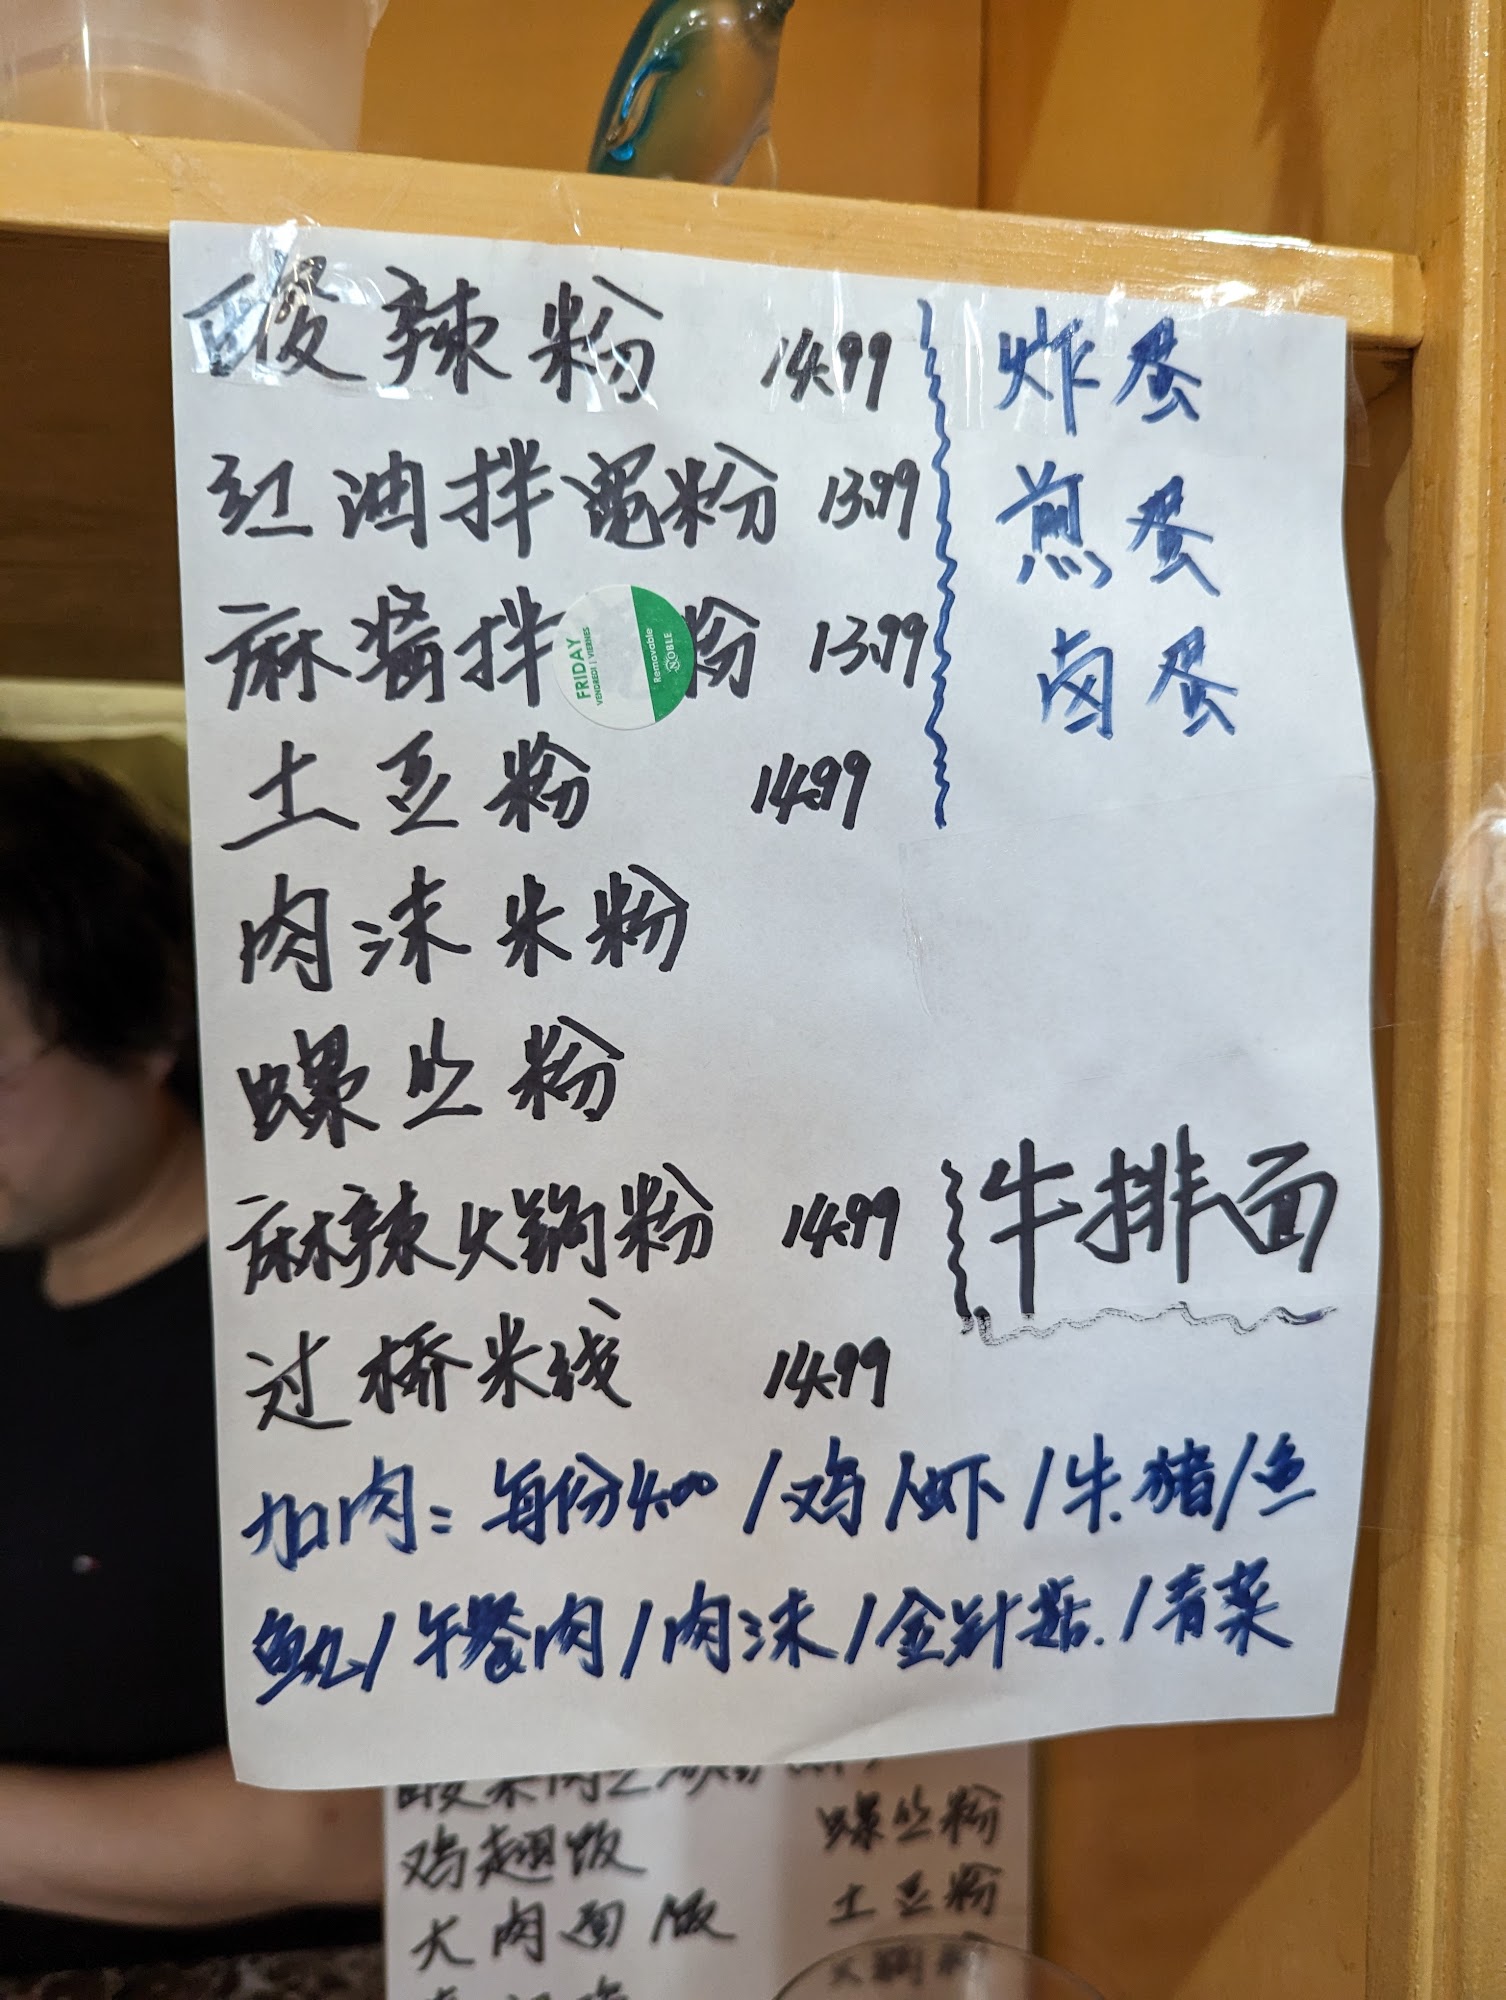 酸辣粉 14.99
红油拌宽粉 13.99
麻酱拌 粉 13.99
FRIDAY
VENDREDI | VIERNES
Removable
NOBLE
土豆粉 14.99
肉沫米粉
螺丝粉
麻辣火锅粉 14.99
过桥米线 14.99
炸蛋
煎蛋
卤蛋
牛排面
加肉: 每份4.00 /鸡/虾/牛.猪/鱼
鱼丸/午餐肉/肉沫/金针菇./青菜
鸡翅饭
大肉面饭
螺丝粉
土豆粉
火锅粉